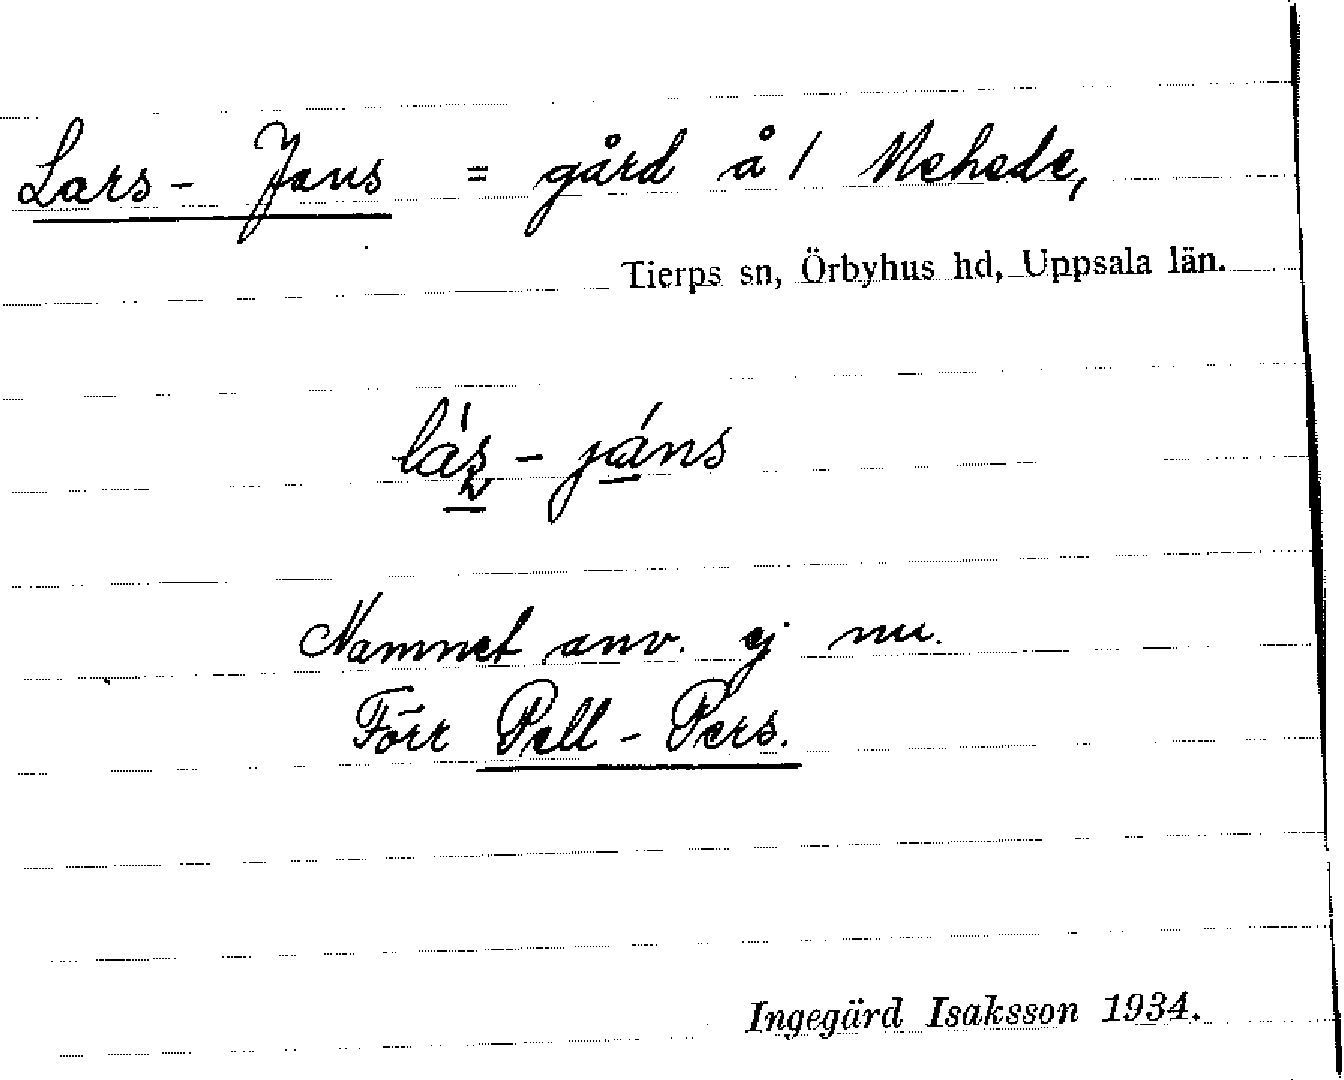 Lars - Jans = gård å 1 Mehede,
Tierps sn, Örbyhus hd, Uppsala län.
lás - jáns
Namnet anv. ej nu.
Förr Pell - Pers.
Ingegärd Isaksson 1934.